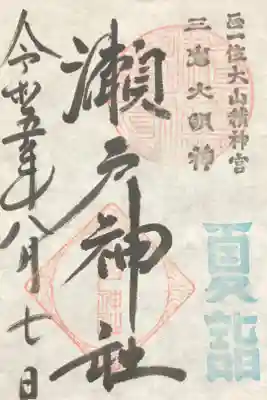 正一位大山積神宮
三島大明神
瀬戸神社
令和五年八月七日
夏詣